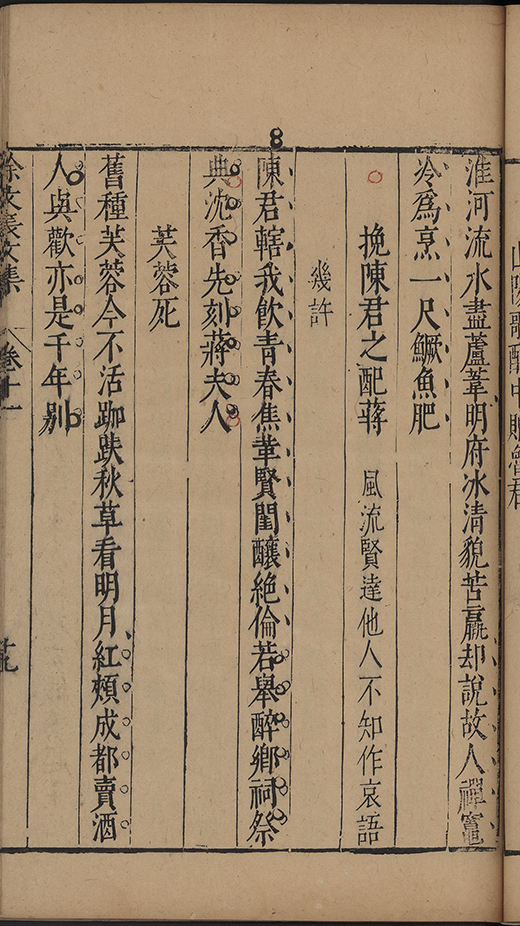 8
淮河流水盡蘆葦明府冰清貌苦羸却說故人禪竈
冷爲烹一尺鱖魚肥
挽陳君之配蔣 風流賢達他人不知作哀語
幾許
陳君轄我飲青春焦革賢閨釀絶倫若舉醉鄉祠祭
典沈香先刻蔣夫人
芙蓉死
舊種芙蓉今不活跏趺秋草看明月紅頰成都賣酒
人與歡亦是千年別
徐文長文集 卷十一